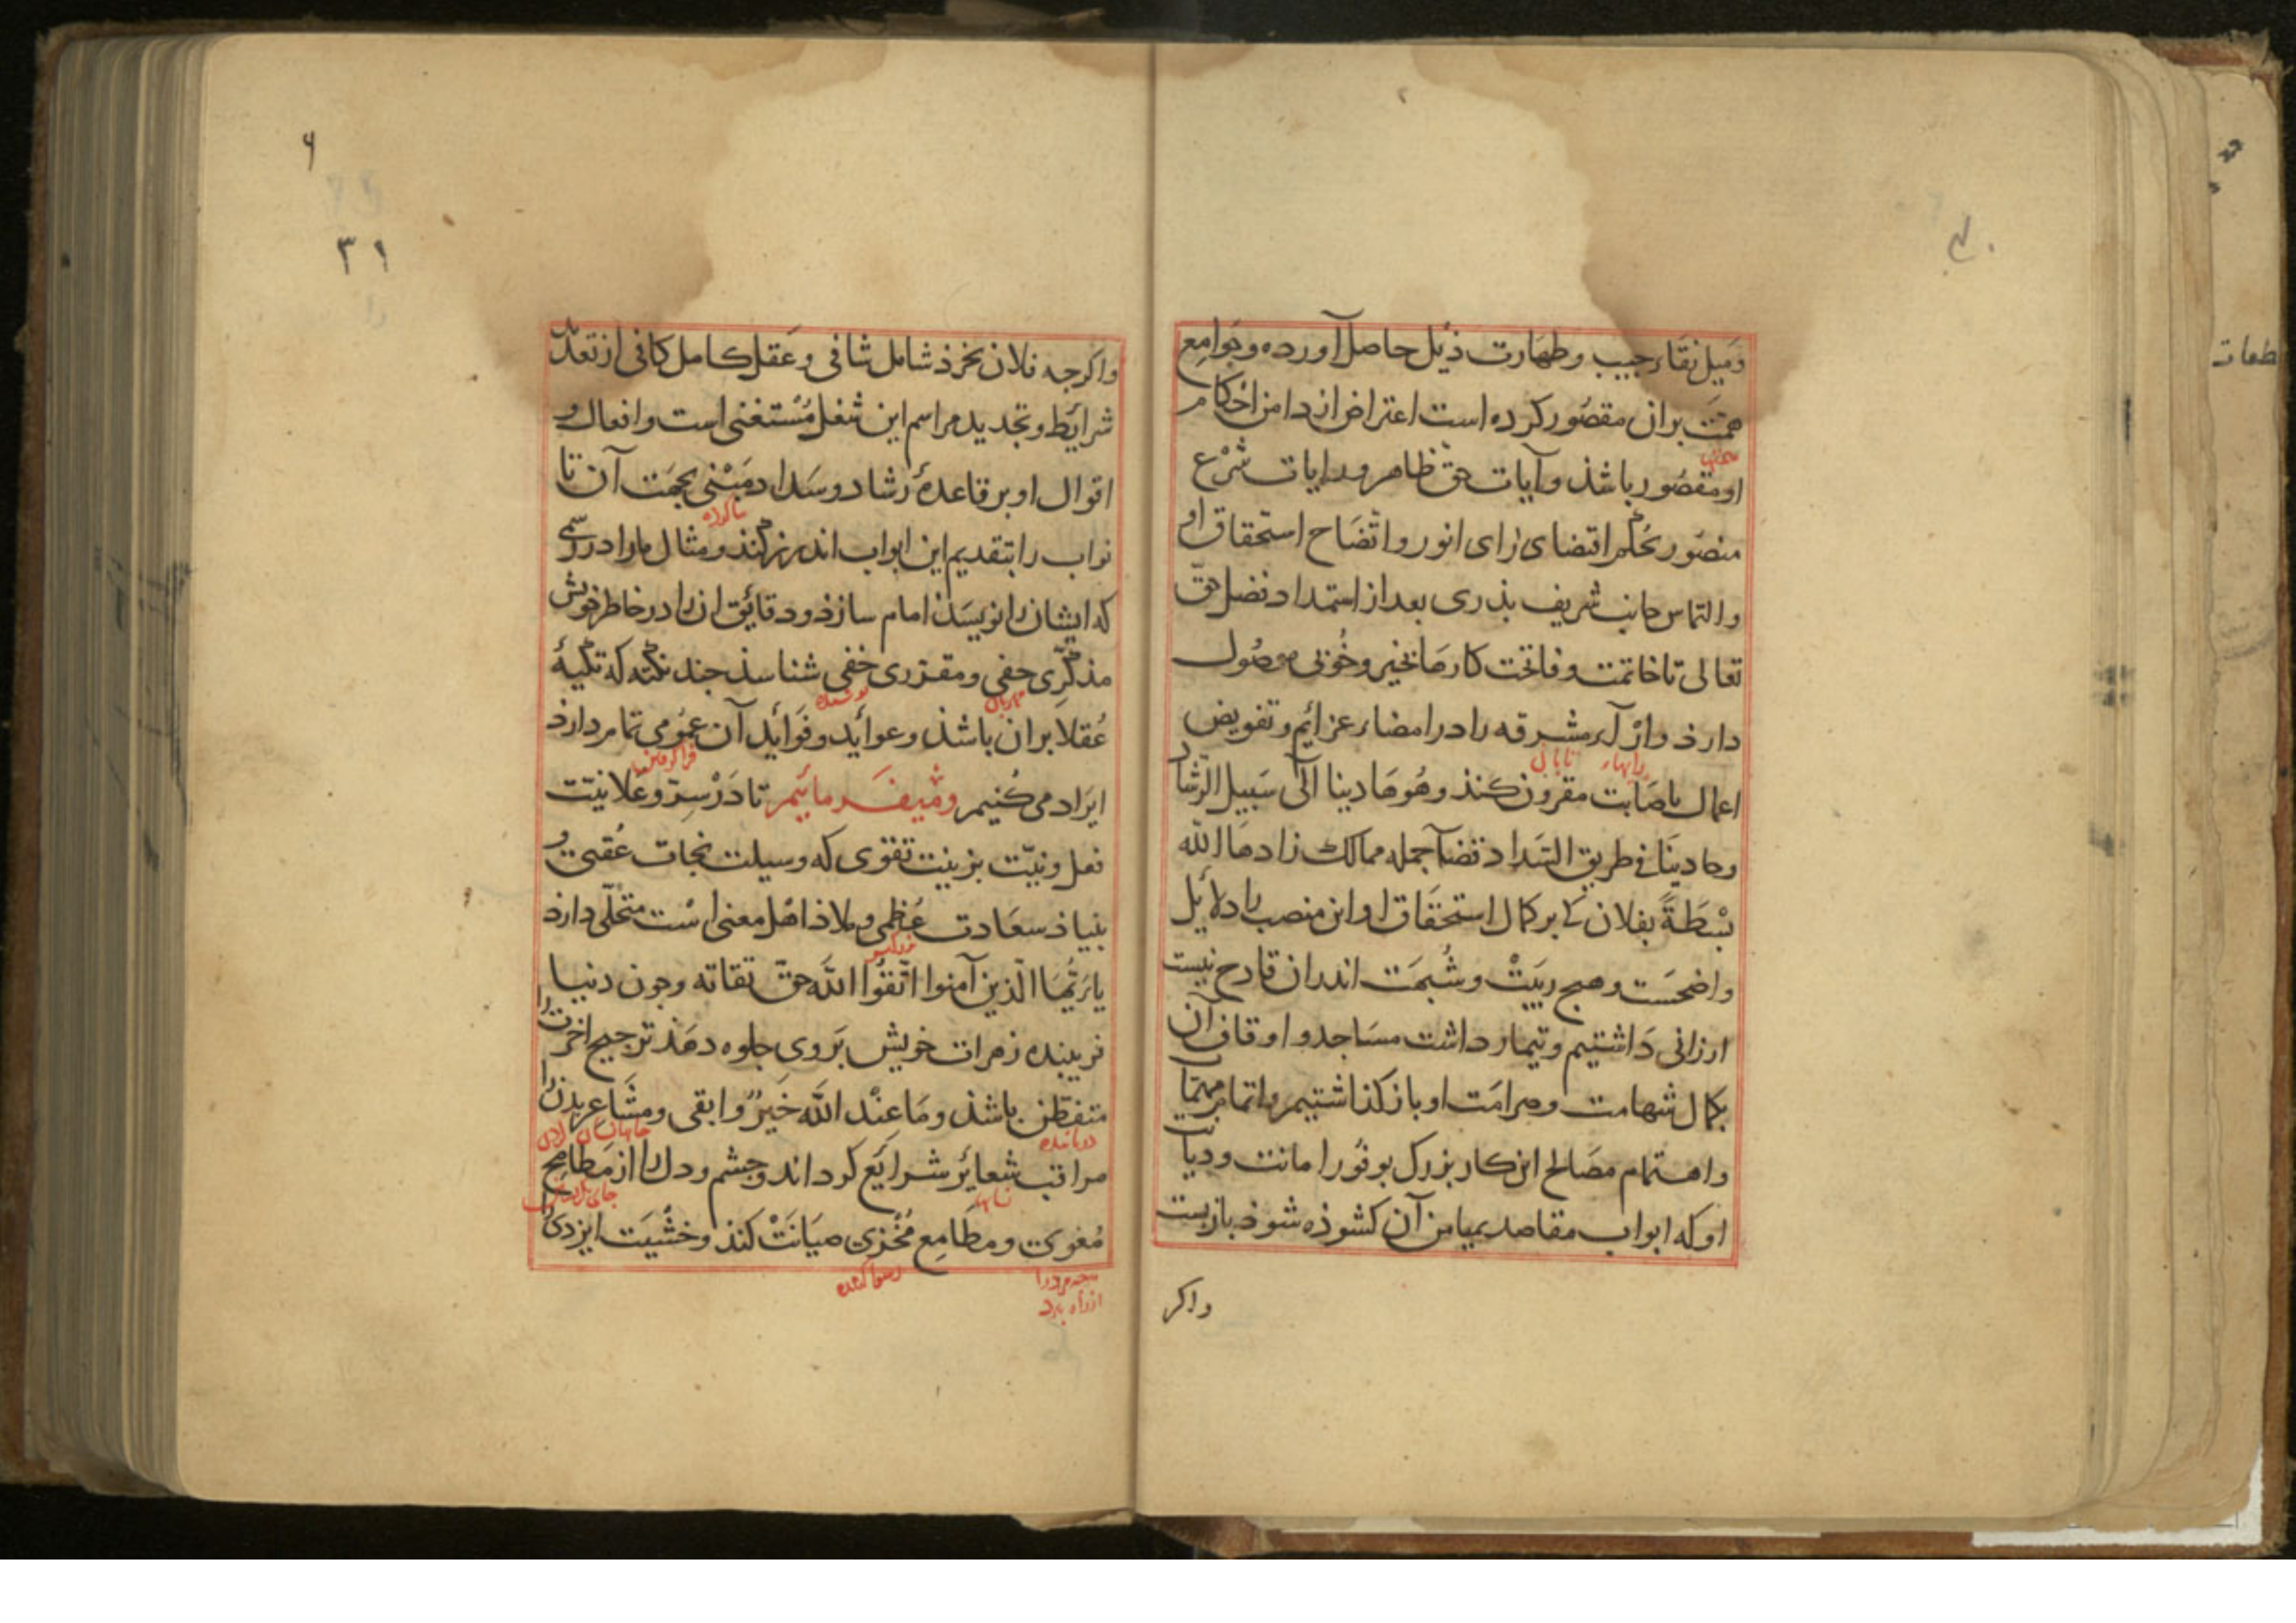 ومیل نقاء جیب وطهارت ذیل حاصل آورده وجوامع
همت بران مقصور کرده است اعتراض از دامن احکام
او مقصور باشذ وآیات حق ظاهر ورایات شرع
منصور بحکم اقتضای رای انور واتضاح استحقاق او
والتماس جانب شریف بذری بعد از استمداد فضل حق
تعالی تا خاتمت وفاتحت کارها بخیر وخوبی موصول
دارذ وآرآء مشرقه را در امضاء عزائم وتفویض
رایهاء تابان
اعمال باصابت مقرون کنذ وهو هادینا الی سبیل الرشاد
وحادینا فی طریق السداد قضآ جمله ممالک زادها الله
بسطة بفلان کی بر کمال استحقاق او این منصب را دلایل
واضحست وهیچ ریبت وشبهت اندران قادح نیست
ارزانی داشتیم وتیمار داشت مساجد واوقاف آن
بکمال شهامت وصرامت او باز کذاشتیم واتمام مهمات
واهتمام مصالح این کار بزرک بوفور امانت ودیانت
او که ابواب مقاصد بمیامن آن کشوذه شوذ بازبست
واکر
۶
۳۱
واکرجه فلان بخرذ شامل شافی وعقل کامل کافی از تعدّد
شرائط وتجدید مراسم این شغل مستغنی است وافعال و
اقوال او بر قاعدهٔ رشاد وسداد مبنی بجهت آن تا
نواب را بتقدیم این ابواب اندرز کنذ ومثال ما را دررسمی
که ایشان را نویسذ امام سازذ ودقائق ان را در خاطر خویش
مذکّری حفی ومقرری خفی شناسذ جند نکته که تکیهٔ
مهربان بوشیده
عقلا بران باشذ وعوائد وفوائد آن عمومی تمام دارذ
ایراد می کنیم ومیفرمائیم تا در سرّ وعلانیت
فعل ونیّت بزینت تقوی که وسیلت نجات عقبی و
بنیاذ سعادت عظمی وملاذ اهل معنی است متحلّی دارذ
یا ایّها الّذین آمنوا اتّقوا الله حقّ تقاته وجون دنیا
فریبنده زهرات خویش بر وی جلوه دهذ ترجیح اخرت را
متفطّن باشذ وما عند الله خیر وابقی ومشاعر بدن را
مراقب شعایر شرایع کرداند وجشم ودل را از مطامح
نشانها
مغوی ومطامع مخزی صیانت کنذ وخشیت ایزدی را
رسوا کننده
از راه برد